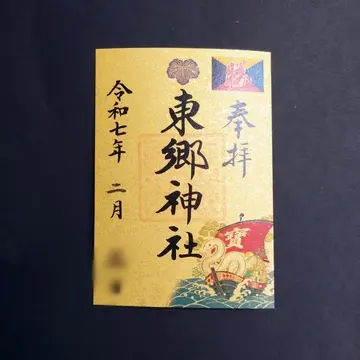 奉拝
東郷神社
令和七年 二月
勝
寶